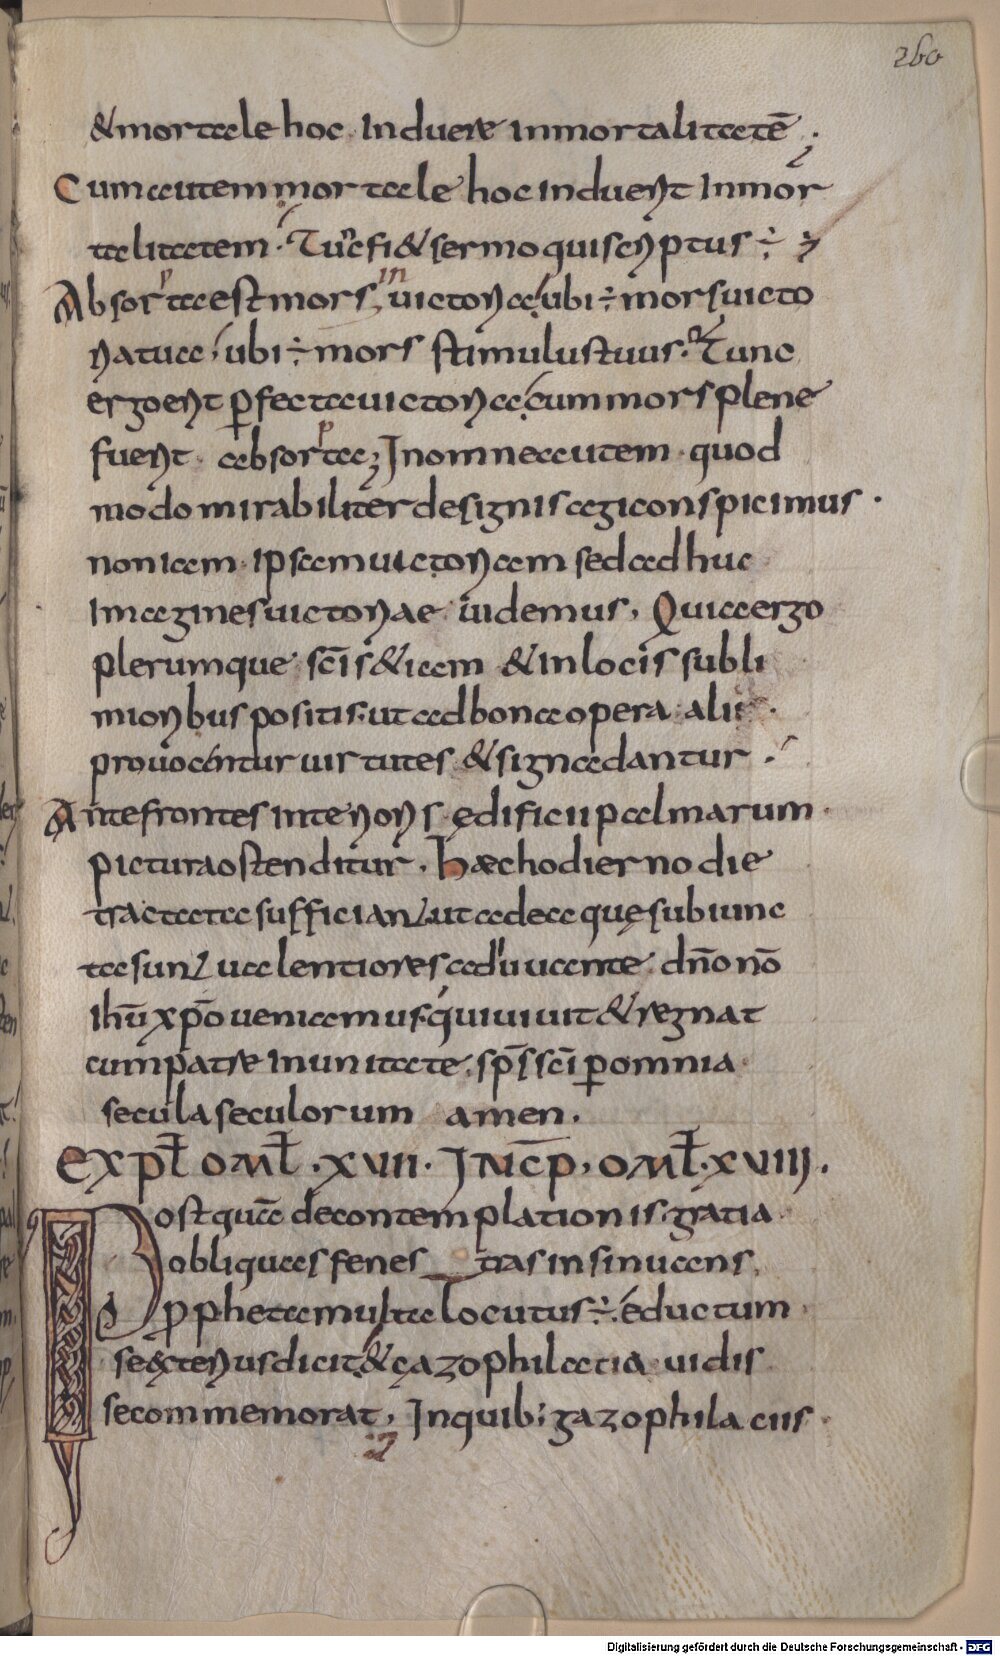 260
&mortale hoc Induere inmortalitatē ;
Cum autem mortale hoc induerit Inmor
talitatem. Tunc fi& sermo qui scriptus ÷
Absorta est mors in uictoria; ubi ÷ mors uicto
ria tua; ubi ÷ mors stimulus tuus. Tunc
ergo erit ꝑfecta uictoria cum mors plene
fuerit absorpta; In omne autem quod
modo mirabiliter de signis agi conspicimus .
non iam ipsam uictoriam sed adhuc
Imagines uictoriae uidemus, Quia ergo
plerumque sc̄is & iam & in locis subli
mioribus positis. ut ad bona opera alii .
prouocantur uirtutes & signa dantur .
Ante frontes interioris ędificii palmarum .
pictura ostenditur . Haec hodierno die
tractata sufficiant. ut ad ea quę subiunc
ta sunt ualentiores adiuuante dn̄o nō
ihū xp̄o ueniamus. qui uiuit & regnat
cum patre In unitate sp̄s sc̄i ꝑ omnia
secula seculorum amen.
EXPŁ OMŁ .XVII. INCP, OMŁ .XVIII.
Postquā de contemplationis gratia
obliquas fenes tras insinuans,
ꝓpheta multa locutus ÷ . eductum
se exterius dicit & gazophilatia uidis
se commemorat, In quib; gazophilaciis .
Digitalisierung gefördert durch die Deutsche Forschungsgemeinschaft - DFG